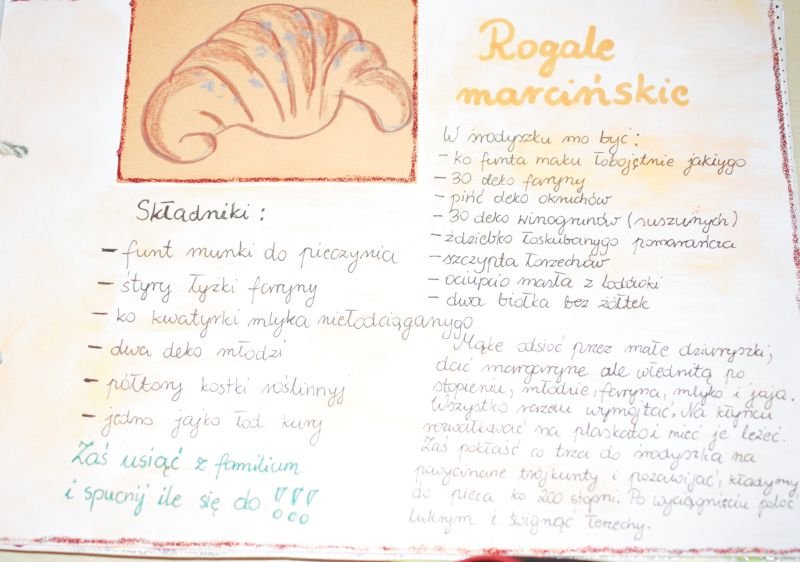 Rogale
marcińskie
Składniki:
– funt munki do pieczynia
– śtyry łyżki faryny
– ko kwatyrki mlyka niełodciąganygo
– dwa deko młodzi
– półtory kostki roślinnyj
– jedno jajko łod kury
Zaś usiąć z familium
i spucnij ile się do !!!
W środyszku mo być:
– ko funta maku łobojętnie jakiygo
– 30 deko faryny
– pińć deko okruchów
– 30 deko winogrunów (suszunych)
– ździebko łoskubanygo pomarańcza
– szczypta łorzechów
– ociupcio masła z lodówki
– dwa biołka bez żółtek
Make odsioć przez małe dziuryszki,
dać margaryne ale wiednitą po
stopieniu, młodzie, faryna, mlyko i jaja.
Wszystko razem wymójtać. Na kłyńcu
rozwałkować na plaskato i mieć je leżeć.
Zaś pokłaść co trza do środyszka na
przycinane trójkunty i pozawijać, kładymy
do pieca ko 200 stopni. Po wyciągnięciu poloć
lukrym i śwignąć łerzechy.